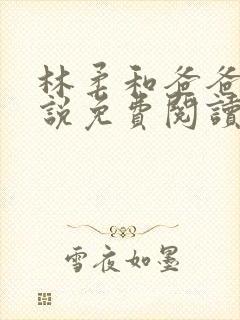 林柔和爸爸
說免費閱讀
雪夜如墨